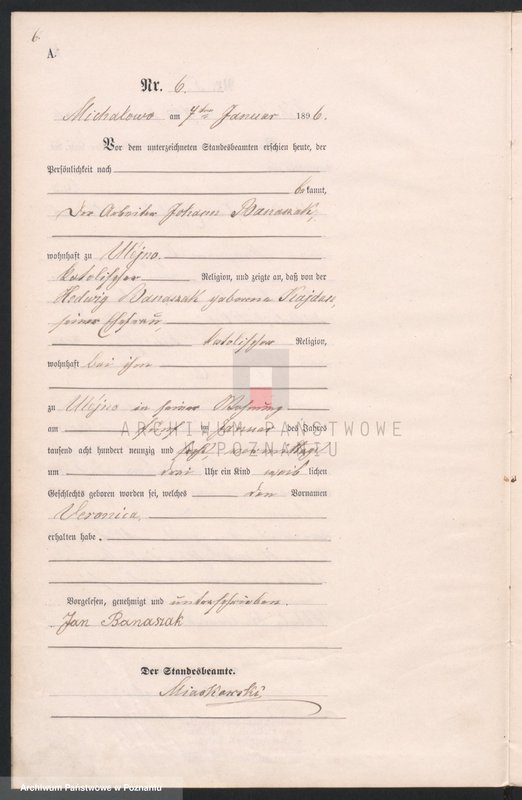 6
A.
Nr. 6.
Michalowo am 7ten Januar 1896.
Vor dem unterzeichneten Standesbeamten erschien heute, der
Persönlichkeit nach
bekannt,
Der Arbeiter Johann Banaszak,
wohnhaft zu Ulejno.
katolischer Religion, und zeigte an, daß von der
Hedwig Banaszak geborene Kajdan,
seiner Ehefrau,
katolischer Religion,
wohnhaft bei ihm
zu Ulejno in seiner Wohnung
am fünf ten Januar des Jahres
tausend acht hundert neunzig und sechs, vormittags
um drei Uhr ein Kind weib lichen
Geschlechts geboren worden sei, welches den Vornamen
Veronica,
erhalten habe.
Vorgelesen, genehmigt und unterschrieben.
Jan Banaszak
Der Standesbeamte.
Miaskowski
ARCHIWUM PAŃSTWOWE
W POZNANIU
Archiwum Państwowe w Poznaniu